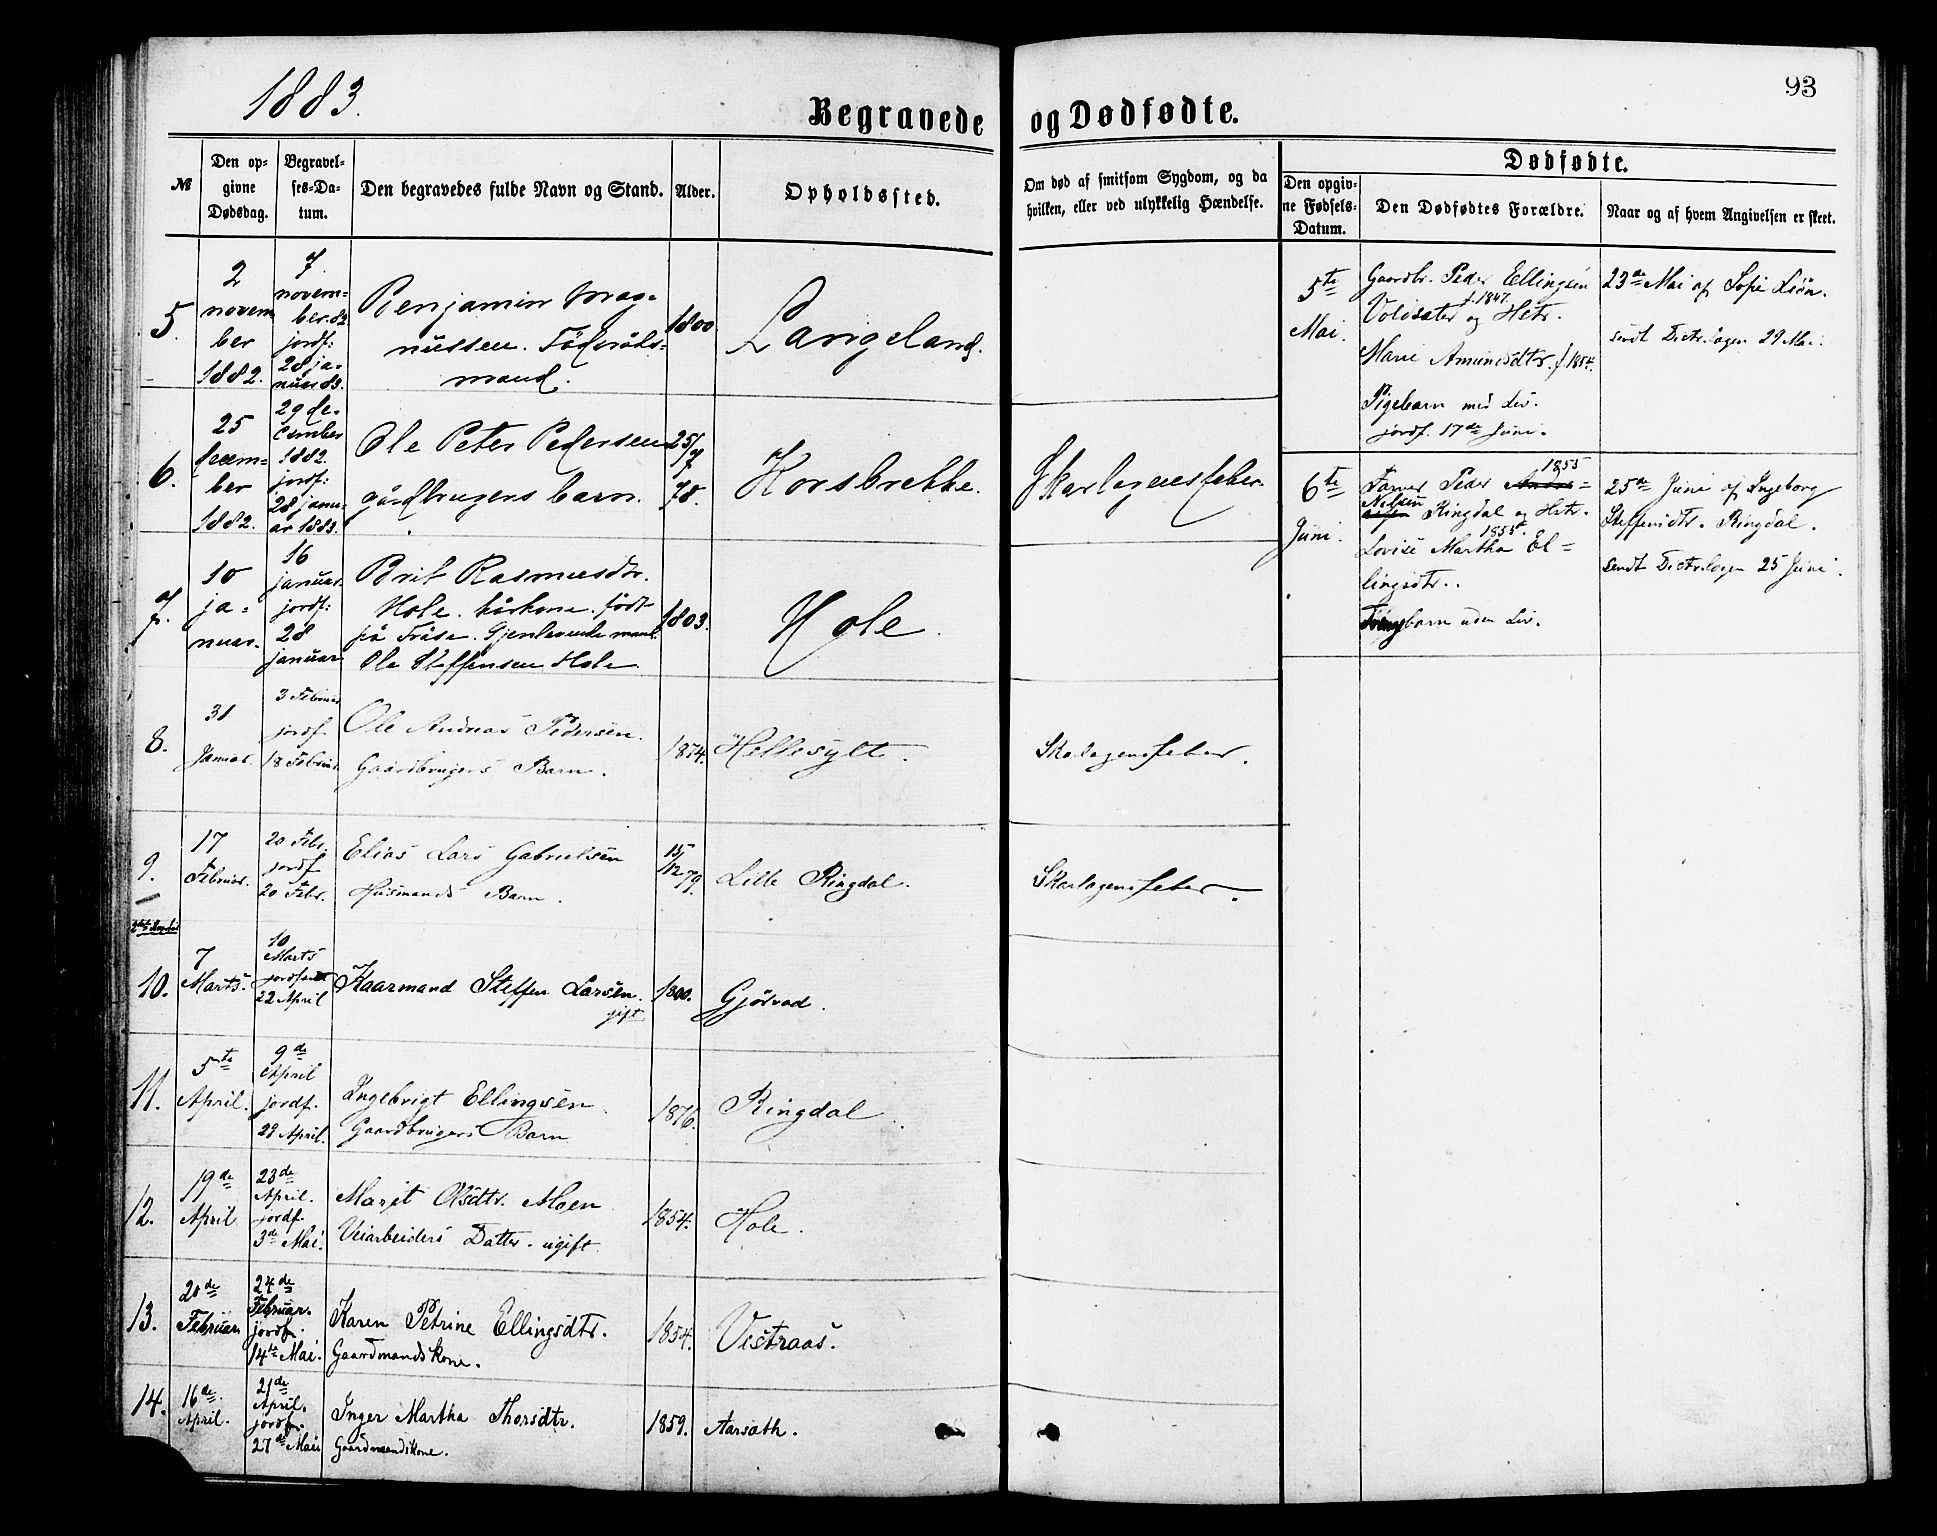 1883.
93
Begravede og Dødfødte.
№
Den op-
givne
Dødsdag.
Begravel-
ses-Da-
tum.
Den begravedes fulde Navn og Stand.
Alder.
Opholdssted.
Om død af smitsom Sygdom, og da
hvilken, eller ved ulykkelig Hændelse.
Dødfødte.
Den opgiv-
ne Fødsels-
Datum.
Den Dødfødtes Forældre.
Naar og af hvem Angivelsen er skeet.
5.
2
novem
ber
1882.
7.
novem-
ber. 82
jordf:
28 ja-
nuar 83.
Benjamin Mag-
nussen. Föderåds-
mand.
1800
Langeland.
6.
25
decem-
ber
1882.
29 de-
cember
1882.
jordf:
28 janu-
ar 1883.
Ole Peter Pedersen
gårdbrugers barn.
25/7
78.
Horsbrekke.
Skarlagensfeber.
7.
10
ja-
nuar.
16
januar.
jordf:
28
januar
Brit Rasmusdtr.
Hole. kårkone. født
på Fråse. Gjenlevende mand:
Ole Steffensen Hole
1803.
Hole.
8.
31
Januar.
3 Februar
jordf.
18 Februar
Ole Andreas Pedersen.
Gaardbrugers Barn.
1874.
Hellesylt.
Skarlagensfeber.
9.
17
Februar.
20 Febr.
jordf
20 Febr.
Elias Lars Gabrielsen
Husmands Barn.
15/12 79.
Lille Ringdal.
Skarlagensfeber.
10.
7
Marts.
10
Marts
jordfæst
22 April
Kaarmand Steffen Larsen.
gift
1800.
Gjørvad.
11.
5te
April.
9de
April
jordf.
29 April.
Ingebrigt Ellingsen.
Gaardbrugers Barn
1876.
Ringdal.
12.
19de
April
23de
April.
jordf.
3de Mai.
Marit Olsdtr. Moen
Veiarbeiders Datter. ugift.
1854.
Hole.
13.
20de
Februar
24de
Februar.
jordf.
14de Mai.
Karen Petrine Ellingsdtr.
Gaardmandskone.
1854.
Vestraas.
14.
16de
April.
21de
April.
jordf.
27de Mai
Inger Martha Thorsdtr.
Gaardmandskone.
1859.
Aarsæth.
5te
Mai.
Gaardbr. Peder Ellingsen
f. 1847.
Voldsæter og Hstr.
Marie Amundsdtr. f. 1854.
Pigebarn med Liv.
jordf. 17de Juni.
23de Mai af Sofie Liøn.
sendt Distr.lægen 29 Mai.
6te
Juni.
1855
Farver Peder
Nilsen Ringdal og Hstr.
1855.
Lovise Martha El-
lingsdtr..
barn uden Liv.
25de Juni af Ingeborg
Steffensdtr. Ringdal.
sendt Distr.lægen 25 Juni.